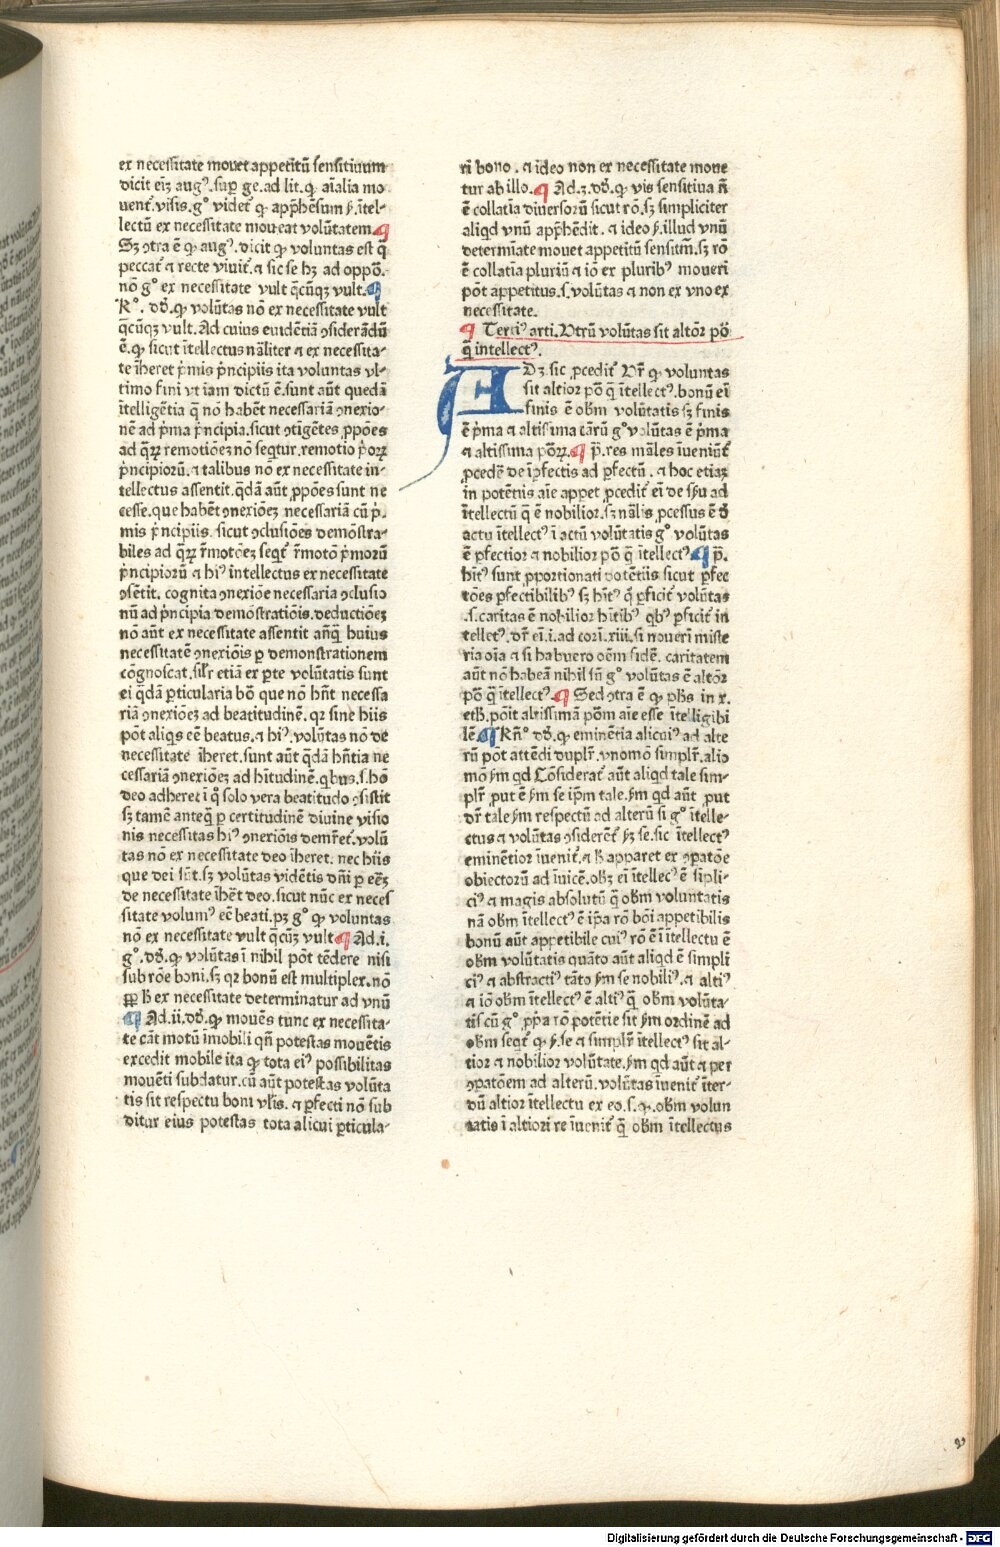 ex necessitate mouet appetitū sensitiuum
dicit eīz augꝰ. suꝑ ge. ad lit. ꝙ aīalia mo
uent᷑. visis. gͦ videt᷑ ꝙ apph̄ēsum ꝑ. ītel-
lectū ex necessitate moueat volūtatem. ¶
Sꝫ ꝯtra ē ꝙ augꝰ. dicit ꝙ voluntas est q̄
peccat᷑ ⁊ recte viuit᷑. ⁊ sic se hꝫ ad oppō.
nō gͦ ex necessitate vult q̄cūqꝫ vult. ¶
Rͦ. dō. ꝙ volūtas nō ex necessitate vult
q̄cūqꝫ vult. Ad cuius euidētiā ꝯsiderādū
ē. ꝙ sicut ītellectus nāliter ⁊ ex necessita-
te īheret p̄mis p̄ncipiis ita voluntas vl-
timo fini vt iam dictū ē. sunt aūt quedā
ītelligētia q̄ nō habēt necessariā ꝯnexio-
nē ad p̄ma p̄ncipia. sicut ꝯtīgētes ꝓpōes
ad qͣꝝ remotiōeꝫ nō seqͥtur. remotio p̄oꝝ
p̄ncipiorū. ⁊ talibus nō ex necessitate in-
tellectus assentit. qͥdā aūt ꝓpōes sunt ne
cesse. que habēt ꝯnexiōeꝫ necessariā cū p̄.
mis p̄ncipiis. sicut ꝯclusiōes demōstra-
biles ad qͣꝝ r̄motōeꝫ seqͥt᷑ r̄motō p̄morū
p̄ncipiorū ⁊ hiꝰ intellectus ex necessitate
ꝯsētit. cognita ꝯnexiōe necessaria ꝯclusio
nū ad p̄ncipia demōstratiōis. deductiōeꝫ
nō aūt ex necessitate assentit anq̄ȝ huius
necessitatē ꝯnexiōis ꝑ demonstrationem
cōgnoscat. silʳ etiā ex ꝑte volūtatis sunt
ei qͥdā ꝑticularia bōͣ que nō hn̄t necessa
riā ꝯnexiōeꝫ ad beatitudinē. qꝛ sine hiis
pōt aliqͥs eē beatus. ⁊ hiꝰ. volūtas nō de
necessitate īheret. sunt aūt qͥdā hn̄tia ne
cessariā ꝯnexiōeꝫ ad btitudinē. qͥbus. s. hō
deo adheret ī qͦ solo vera beatitudo ꝯsistit
sꝫ tamē anteq̄ȝ ꝑ certitudinē diuine visio
nis necessitas hiꝰ ꝯnexiōis demr̄et᷑. volū
tas nō ex necessitate deo īheret. nec hiis
que dei sn̄t. sꝫ volūtas vidētis dn̄i ꝑ eēꝫ
de necessitate īhet deo. sicut nūc ex neces
sitate volumꝰ eē beati. pꝫ gͦ ꝙ voluntas
nō ex necessitate vult q̄cūqꝫ vult ¶ Ad. i.
gͦ. dō. ꝙ volūtas ī nihil pōt tēdere nisi
sub rōe boni. sꝫ qꝛ bonū est multiplex. nō
ꝓꝑ h̄ ex necessitate determinatur ad vnū
¶ Ad. ii. dō. ꝙ mouēs tunc ex necessita-
te cāt motū īmobili qn̄ potestas mouētis
excedit mobile ita ꝙ tota eiꝰ possibilitas
mouēti subdatur. cū aūt potestas volūta
tis sit respectu boni vlīs. ⁊ ꝑfecti nō sub
ditur eius potestas tota alicui ꝑticula-
ri bono. ⁊ ideo non ex necessitate moue
tur ab illo. ¶ Ad. 3. dō. ꝙ vis sensitiua n̄
ē collatīa diuersorū sicut rō. sꝫ simpliciter
aliqͥd vnū apph̄ēdit. ⁊ ideo ꝑ. illud vnū
determīate mouet appetitū sensitm̄. sꝫ rō
ē collatīa pluriū ⁊ iō ex pluribꝰ moueri
pōt appetitus. s. volūtas ⁊ non ex vno ex
necessitate.
¶ Terciꝰ arti. Vtrū volūtas sit altōr pō
q̄ȝ intellectꝰ.
AD 3. sic ꝓcedit᷑ Vr̄ ꝙ voluntas
sit altior pōͣ q̄ȝ ītellectꝰ. bonū eī
finis ē obm̄ volūtatis sꝫ finis
ē p̄ma ⁊ altissima cārū gͦ volūtas ē p̄ma
⁊ altissima pōꝝ. ¶ p̄. res nāles īueniūt᷑
ꝓcedē de īꝑfectis ad ꝑfectū. ⁊ hoc etiaꝫ
in potētiis aīe apꝑet ꝓcedit᷑ eī de sēsu ad
ītellectū q̄ ē nobilior. sꝫ nālis ꝓcessus ē d̄
actu ītellectꝰ ī actū volūtatis gͦ volūtas
ē ꝑfectior ⁊ nobilior pōͣ q̄ȝ ītellectꝰ ¶ p̄.
hītꝰ sunt ꝓportionati potētiis sicut ꝑfec
tōes ꝑfectibilibꝰ sꝫ hītꝰ q̄ ꝑficit᷑ volūtas
. s. caritas ē nobilior hītibꝰ qͥbꝰ ꝑficit᷑ in
tellectꝰ. dr̄ eī. i. ad cori. xiii. si nouerī miste
ria oīa ⁊ si habuero oēm fidē. caritatem
aūt nō habeā nihil sū gͦ volūtas ē altōr
pōͣ q̄ȝ ītellectꝰ. ¶ Sed ꝯtra ē ꝙ ph̄s in x.
eth̄. pōit altissimā pōm aīe esse ītelligibi
lē. ¶ Rn̄ͦ dō. ꝙ eminētia alicuiꝰ ad alte
rū pōt attēdi duplr̄. vnomō simplr̄. alio
mō ẜm qd Cōsiderat᷑ aūt aliqͥd tale sim-
plr̄ ꝓut ē ẜm se ip̄m tale. ẜm qd aūt ꝓut
dr̄ tale ẜm respectū ad alterū si gͦ ītelle-
ctus ⁊ volūtas ꝯsiderēt᷑ ẜꝫ se. sic ītellectꝰ
eminētior īuenit᷑. ⁊ h̄ apparet ex ꝯpatōe
obiectorū ad īuicē. obꝫ eī ītellecꝰ ē sīpli-
ciꝰ ⁊ magis absolutū q̄ȝ obm̄ voluntatis
nā obm̄ ītellectꝰ ē ip̄a rō bōi appetibilis
bonū aūt appetibile cuiꝰ rō ē ī ītellectu ē
obm̄ volūtatis quāto aūt aliqͥd ē simpli
ciꝰ ⁊ abstractiꝰ tāto ẜm se nobiliꝰ. ⁊ altiꝰ
⁊ iō obm̄ ītellectꝰ ē altiꝰ q̄ȝ obm̄ volūta-
tis cū gͦ ꝓp̄a rō potētie sit ẜm ordinē ad
obm̄ seqͥt᷑ ꝙ ẜ. se ⁊ simplr̄ ītellectꝰ sit al-
tior ⁊ nobilior volūtate. ẜm qd aūt ⁊ per
ꝯpatōem ad alterū. volūtas īuenit᷑ īter-
dū altior ītellectu ex eo. s. ꝙ. obm̄ volun
tatis ī altiori re īuenit᷑ q̄ȝ obm̄ ītellectus
Digitalisierung gefördert durch die Deutsche Forschungsgemeinschaft - DFG